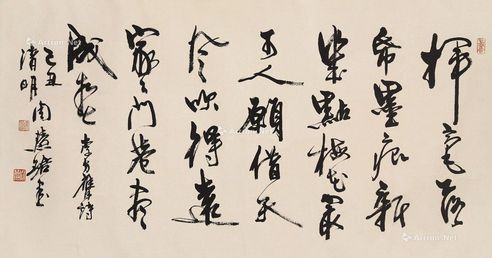 揮毫落
帋墨痕新
幾點梅花最
可人願借天
風吹得遠
家々門巷盡
成春 李方膺詩
己丑
清明周慧珺書
Artron.Net